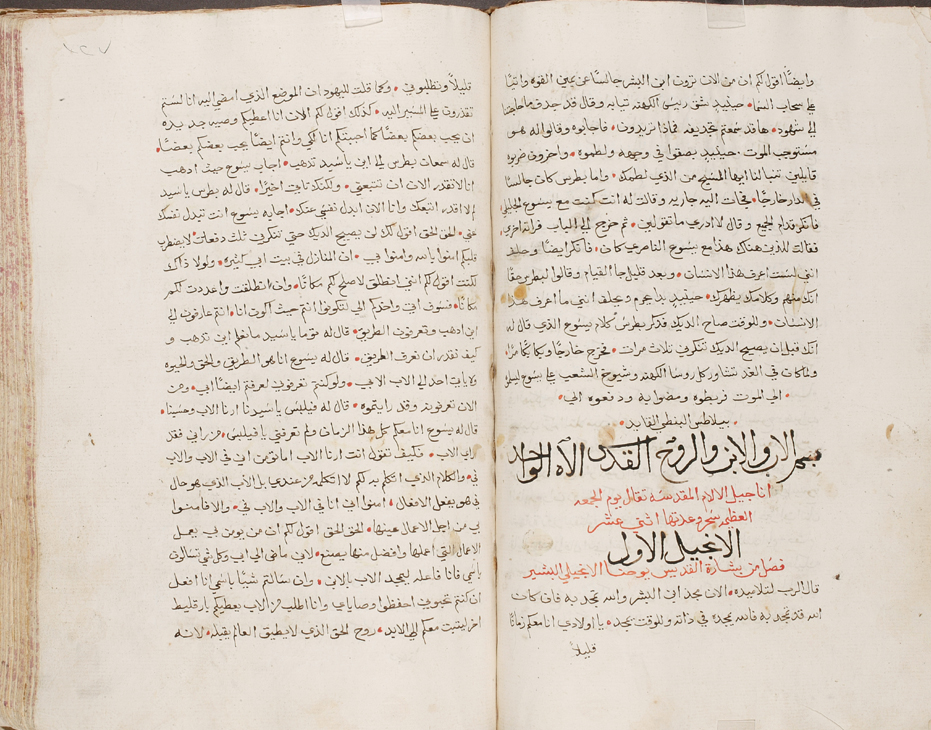 وايضًا اقول لكم ان من الان ترون ابن البشر جالسًا عن يمين القوه واتيًا
على سحاب السما • حينيذٍ شق رييس الكهنه ثيابه وقال قد جدف ما حاجتنا
الى شهود • ها قد سمعتم تجديفه فماذا تريدون • فاجابوه وقالوا له هو
مستوجب الموت حينيذٍ بصقوا في وجهه ولطموه • واخرون ضربوه
قايلين تنبا لنا ايها المسيح من الذي لطمك • واما بطرس كان جالسًا
في الدار خارجًا • فجات اليه جاريه وقالت له انت كنت مع يسوع الجليلي
فانكر قدام الجميع وقال لا ادري ما تقولين • ثم خرج الى الباب فراته اخرى
فقالت للذين هناك هذا مع يسوع الناصري كان • فانكر ايضًا وحلف
انني لست اعرف هذا الانسان • وبعد قليل جا القيام وقالوا لبطرس حقًا
انك منهم وكلامك يظهرك • حينيذٍ بدا يحرم ويحلف انني ما اعرف هذا
الانسان • وللوقت صاح الديك فذكر بطرس كلام يسوع الذي قال له
انك قبل ان يصيح الديك تنكرني ثلاث مرات • فخرج خارجًا وبكا بكًا مرًا •
ولما كان في الغد تشاور كل روسا الكهنه وشيوخ الشعب على يسوع ليسلموه
• الى الموت فربطوه ومضوا به ودفعوه الى •
• بيلاطس البنطي القايد •
بسم الاب والابن والروح القدس الاه الواحد
اناجيل الالام المقدسه تقال يوم الجمعه
العظيمه سحر وعدتها اثنى عشر
الانجيل الاول
فصل من بشارة القديس يوحنا الانجيلي البشير
قال الرب لتلاميذه • الان مجد ابن البشر والله تمجد به فان كان
الله قد تمجد به فالله يمجده في ذاته وللوقت يمجده • يا اولادي انا معكم زمانًا
قليلاً
١٢٧
قليلاً وتطلبوني • وكما قلت لليهود ان الموضع الذي امضي اليه انا لستم
تقدرون على المسير اليه • كذلك اقول لكم الان انا اعطيكم وصيه جديده
ان يحب بعضكم بعضًا كما احببتكم انا لكي وانتم ايضًا يحب بعضكم بعضًا •
قال له سمعان بطرس الى اين يا سيد تذهب • اجاب يسوع حيث اذهب
انا لا تقدر الان ان تتبعني • ولكنك تاتي اخيرًا • قال له بطرس يا سيد
لم لا اقدر اتبعك وانا الان ابدل نفسي عنك • اجابه يسوع انت تبدل نفسك
عني • الحق الحق اقول لك لن يصيح الديك حتى تنكرني ثلث دفعات • لا يضطرب
قلبكم امنوا بالله وامنوا بي • ان المنازل في بيت ابي كثيره • ولولا ذاك
لكنت اقول لكم انني انطلق لاصلح لكم مكانًا • وان انطلقت واعددت لكم
مكانًا • فسوف اتي واخذكم الي لتكونوا انتم حيث اكون انا • انتم عارفون الى
اين اذهب وتعرفون الطريق • قال له توما يا سيد ما نعلم اين تذهب و
كيف نقدر ان نعرف الطريق • قال له يسوع انا هو الطريق والحق والحيوه
ولا ياتي احد الى الاب الا بي • ولو كنتم تعرفوني لعرفتم ايضًا ابي • ومن
الان تعرفونه وقد رايتموه • قال له فيلبس يا سيد ارنا الاب وحسبنا •
قال له يسوع انا معكم كل هذا الزمان ولم تعرفني يا فيلبس • من راني فقد
راى الاب • فكيف تقول انت ارنا الاب اما تومن اني في الاب والاب
في • والكلام الذي اتكلم به لكم لا اتكلمه من عندي بل الاب الذي هو حال
في هو يفعل الافعال • امنوا بي انا في الاب والاب في • والا فامنوا
بي من اجل الاعمال عينها • الحق الحق اقول لكم ان من يومن بي يعمل
الاعمال التي اعملها وافضل منها يصنع • لاني ماضي الى اب وكل شي تسالون
باسمي فانا فاعله ليتمجد الاب بالابن • وان سالتم شيئًا باسمي انا افعل
ان كنتم تحبوني احفظوا وصاياي وانا اطلب من الاب يعطيكم بارقليط
اخر ليثبت معكم الى الابد • روح الحق الذي لا يطيق العالم يقبله • لانه